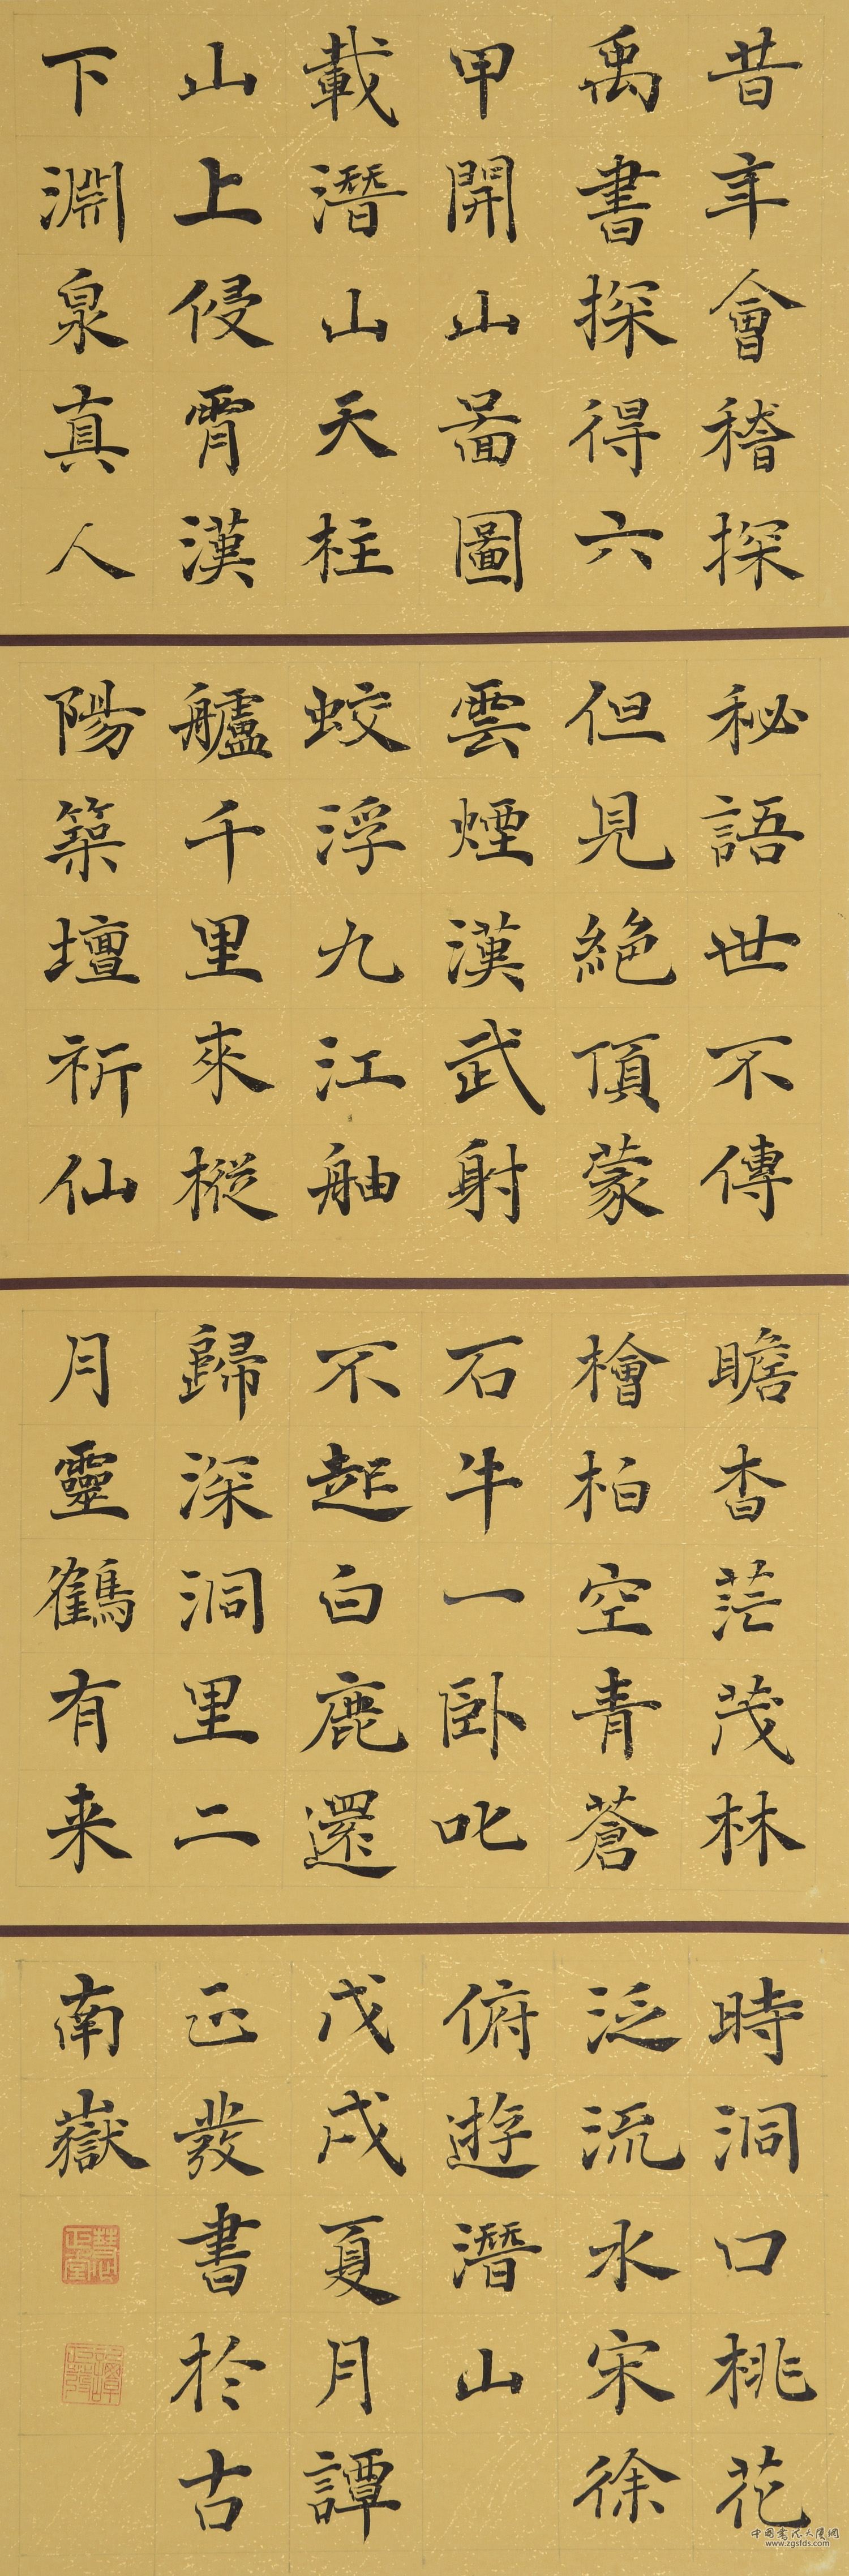 昔年會稽探
禹書探得六
甲開山啚圖
載潛山天柱
山上侵霄漢
下淵泉真人
秘語世不傳
但見絕頂蒙
雲煙漢武射
蛟浮九江舳
艫千里來樅
陽築壇祈仙
瞻杳茫茂林
檜柏空青蒼
石牛一卧叱
不起白鹿還
歸深洞里二
月靈鶴有来
時洞口桃花
泛流水宋徐
俯遊潛山
戊戌夏月譚
正發書於古
南嶽
www.zgsfds.com